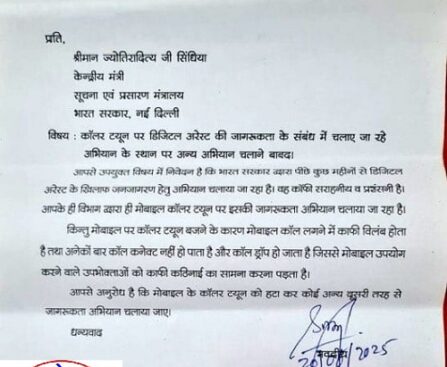 प्रति,
श्रीमान ज्योतिरादित्य जी सिंधिया
केन्द्रीय मंत्री
सूचना एवं प्रसारण मंत्रालय
भारत सरकार, नई दिल्ली
विषय : कॉलर टयून पर डिजिटल अरेस्ट की जागरूकता के संबंध में चलाए जा रहे
अभियान के स्थान पर अन्य अभियान चलाने बाबद।
आपसे उपयुक्त विषय में निवेदन है कि भारत सरकार द्वारा पीछे कुछ महीनों से डिजिटल
अरेस्ट के खिलाफ जनजागरण हेतु अभियान चलाया जा रहा है। वह कॉफी सराहनीय व प्रशंसनी है।
आपके ही विभाग द्वारा ही मोबाइल कॉलर टयून पर इसकी जागरूकता अभियान चलाया जा रहा है।
किन्तु मोबाईल पर कॉलर टयून बजने के कारण मोबाईल कॉल लगने में काफी विलंब होता
है तथा अनेकों बार कॉल कनेक्ट नहीं हो पाता है और कॉल ड्रॉप हो जाता है जिससे मोबाइल उपयोग
करने वाले उपभोक्ताओं को काफी कठिनाई का सामना करना पड़ता है।
आपसे अनुरोध है कि मोबाइल के कॉलर टयून को हटा कर कोई अन्य दूसरी तरह से
जागरूकता अभियान चलाया जाए।
धन्यवाद
भवदीय
20/08/2025